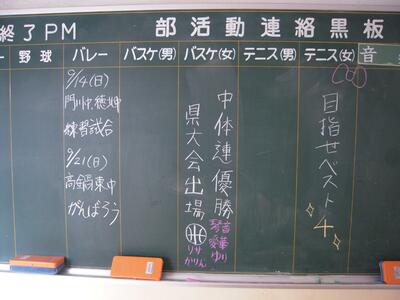 終了PM 部活動連絡黒板
野球
バレー
バスケ(男)
バスケ(女)
テニス(男)
テニス(女)
音
9/14(日)
門川中、徳北中
練習試合
9/21(日)
高鍋東中
がんばろう
中体連優勝
県大会出場
琴音
愛華
ゆり
リサ
かりん
目指せベスト4